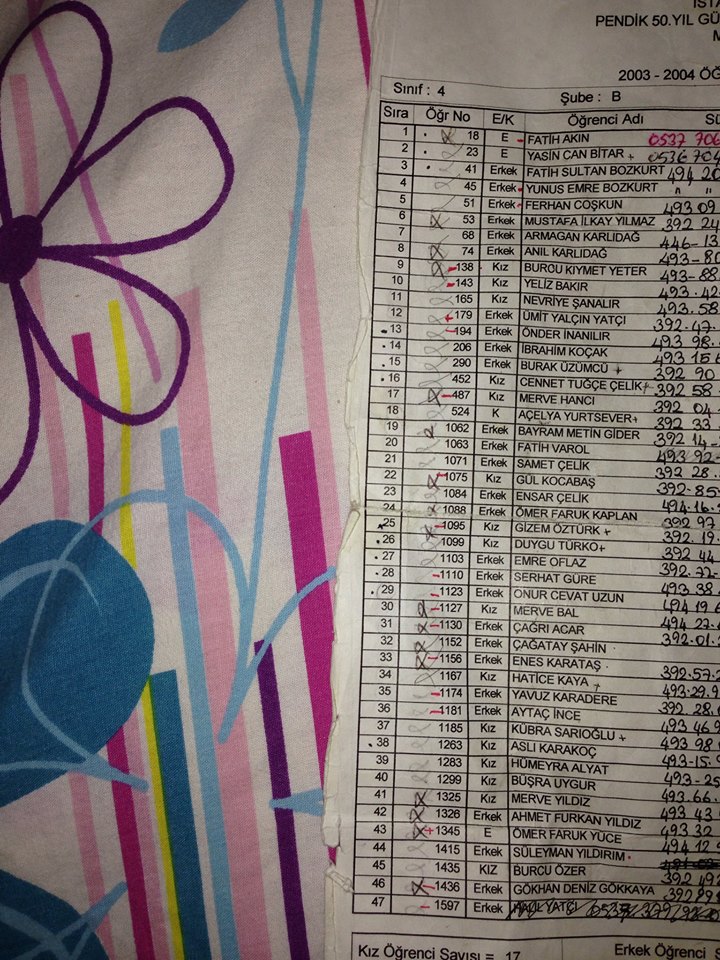 İSTA
PENDİK 50.YIL GÜ
M
2003 - 2004 ÖĞ
Sınıf : 4 Şube : B
Sıra Öğr No E/K Öğrenci Adı
1 18 E FATİH AKIN 0537 706
2 23 E YASİN CAN BİTAR + 0536 704
3 41 Erkek FATİH SULTAN BOZKURT 494 20
4 45 Erkek YUNUS EMRE BOZKURT " "
5 51 Erkek FERHAN COŞKUN 493 09
6 53 Erkek MUSTAFA İLKAY YILMAZ 392 24
7 68 Erkek ARMAGAN KARLIDAĞ 446-13
8 74 Erkek ANIL KARLIDAĞ 493-80
9 138 Kız BURCU KIYMET YETER 493-88
10 143 Kız YELİZ BAKIR 493.42
11 165 Kız NEVRİYE ŞANALIR 493.58
12 179 Erkek ÜMİT YALÇIN YATÇI 392.47
13 194 Erkek ÖNDER İNANILIR 493 98
14 206 Erkek İBRAHİM KOÇAK 493 15 6
15 290 Erkek BURAK ÜZÜMCÜ + 392 90
16 452 Kız CENNET TUĞÇE ÇELİK + 392 58
17 487 Kız MERVE HANCI 392 04
18 524 K AÇELYA YURTSEVER + 392 33
19 1062 Erkek BAYRAM METİN GİDER 392 14
20 1063 Erkek FATİH VAROL 493 92
21 1071 Erkek SAMET ÇELİK 392 28
22 1075 Kız GÜL KOCABAŞ 392-85
23 1084 Erkek ENSAR ÇELİK 494.16
24 1088 Erkek ÖMER FARUK KAPLAN 392 97
25 1095 Kız GİZEM ÖZTÜRK + 392.19
26 1099 Kız DUYGU TÜRKO + 392 44
27 1103 Erkek EMRE OFLAZ 392.72
28 1110 Erkek SERHAT GÜRE 493 38
29 1123 Erkek ONUR CEVAT UZUN 494 19 6
30 1127 Kız MERVE BAL 494 27
31 1130 Erkek ÇAĞRI ACAR 392.01
32 1152 Erkek ÇAĞATAY ŞAHİN
33 1156 Erkek ENES KARATAŞ 392.57
34 1167 Kız HATİCE KAYA + 493.29.9
35 1174 Erkek YAVUZ KARADERE 392 28
36 1181 Erkek AYTAÇ İNCE 493 46 9
37 1185 Kız KÜBRA SARIOĞLU + 493 98
38 1263 Kız ASLI KARAKOÇ 493-15
39 1283 Kız HÜMEYRA ALYAT 493-25
40 1299 Kız BÜŞRA UYGUR 493.66
41 1325 Kız MERVE YILDIZ 493 43
42 1326 Erkek AHMET FURKAN YILDIZ 493 32
43 1345 E ÖMER FARUK YÜCE 494 12 9
44 1415 Erkek SÜLEYMAN YILDIRIM
45 1435 KIZ BURCU ÖZER 392 492
46 1436 Erkek GÖKHAN DENİZ GÖKKAYA
47 1597 Erkek HALİL YATÇI
Kız Öğrenci Sayısı = 17 Erkek Öğrenci S